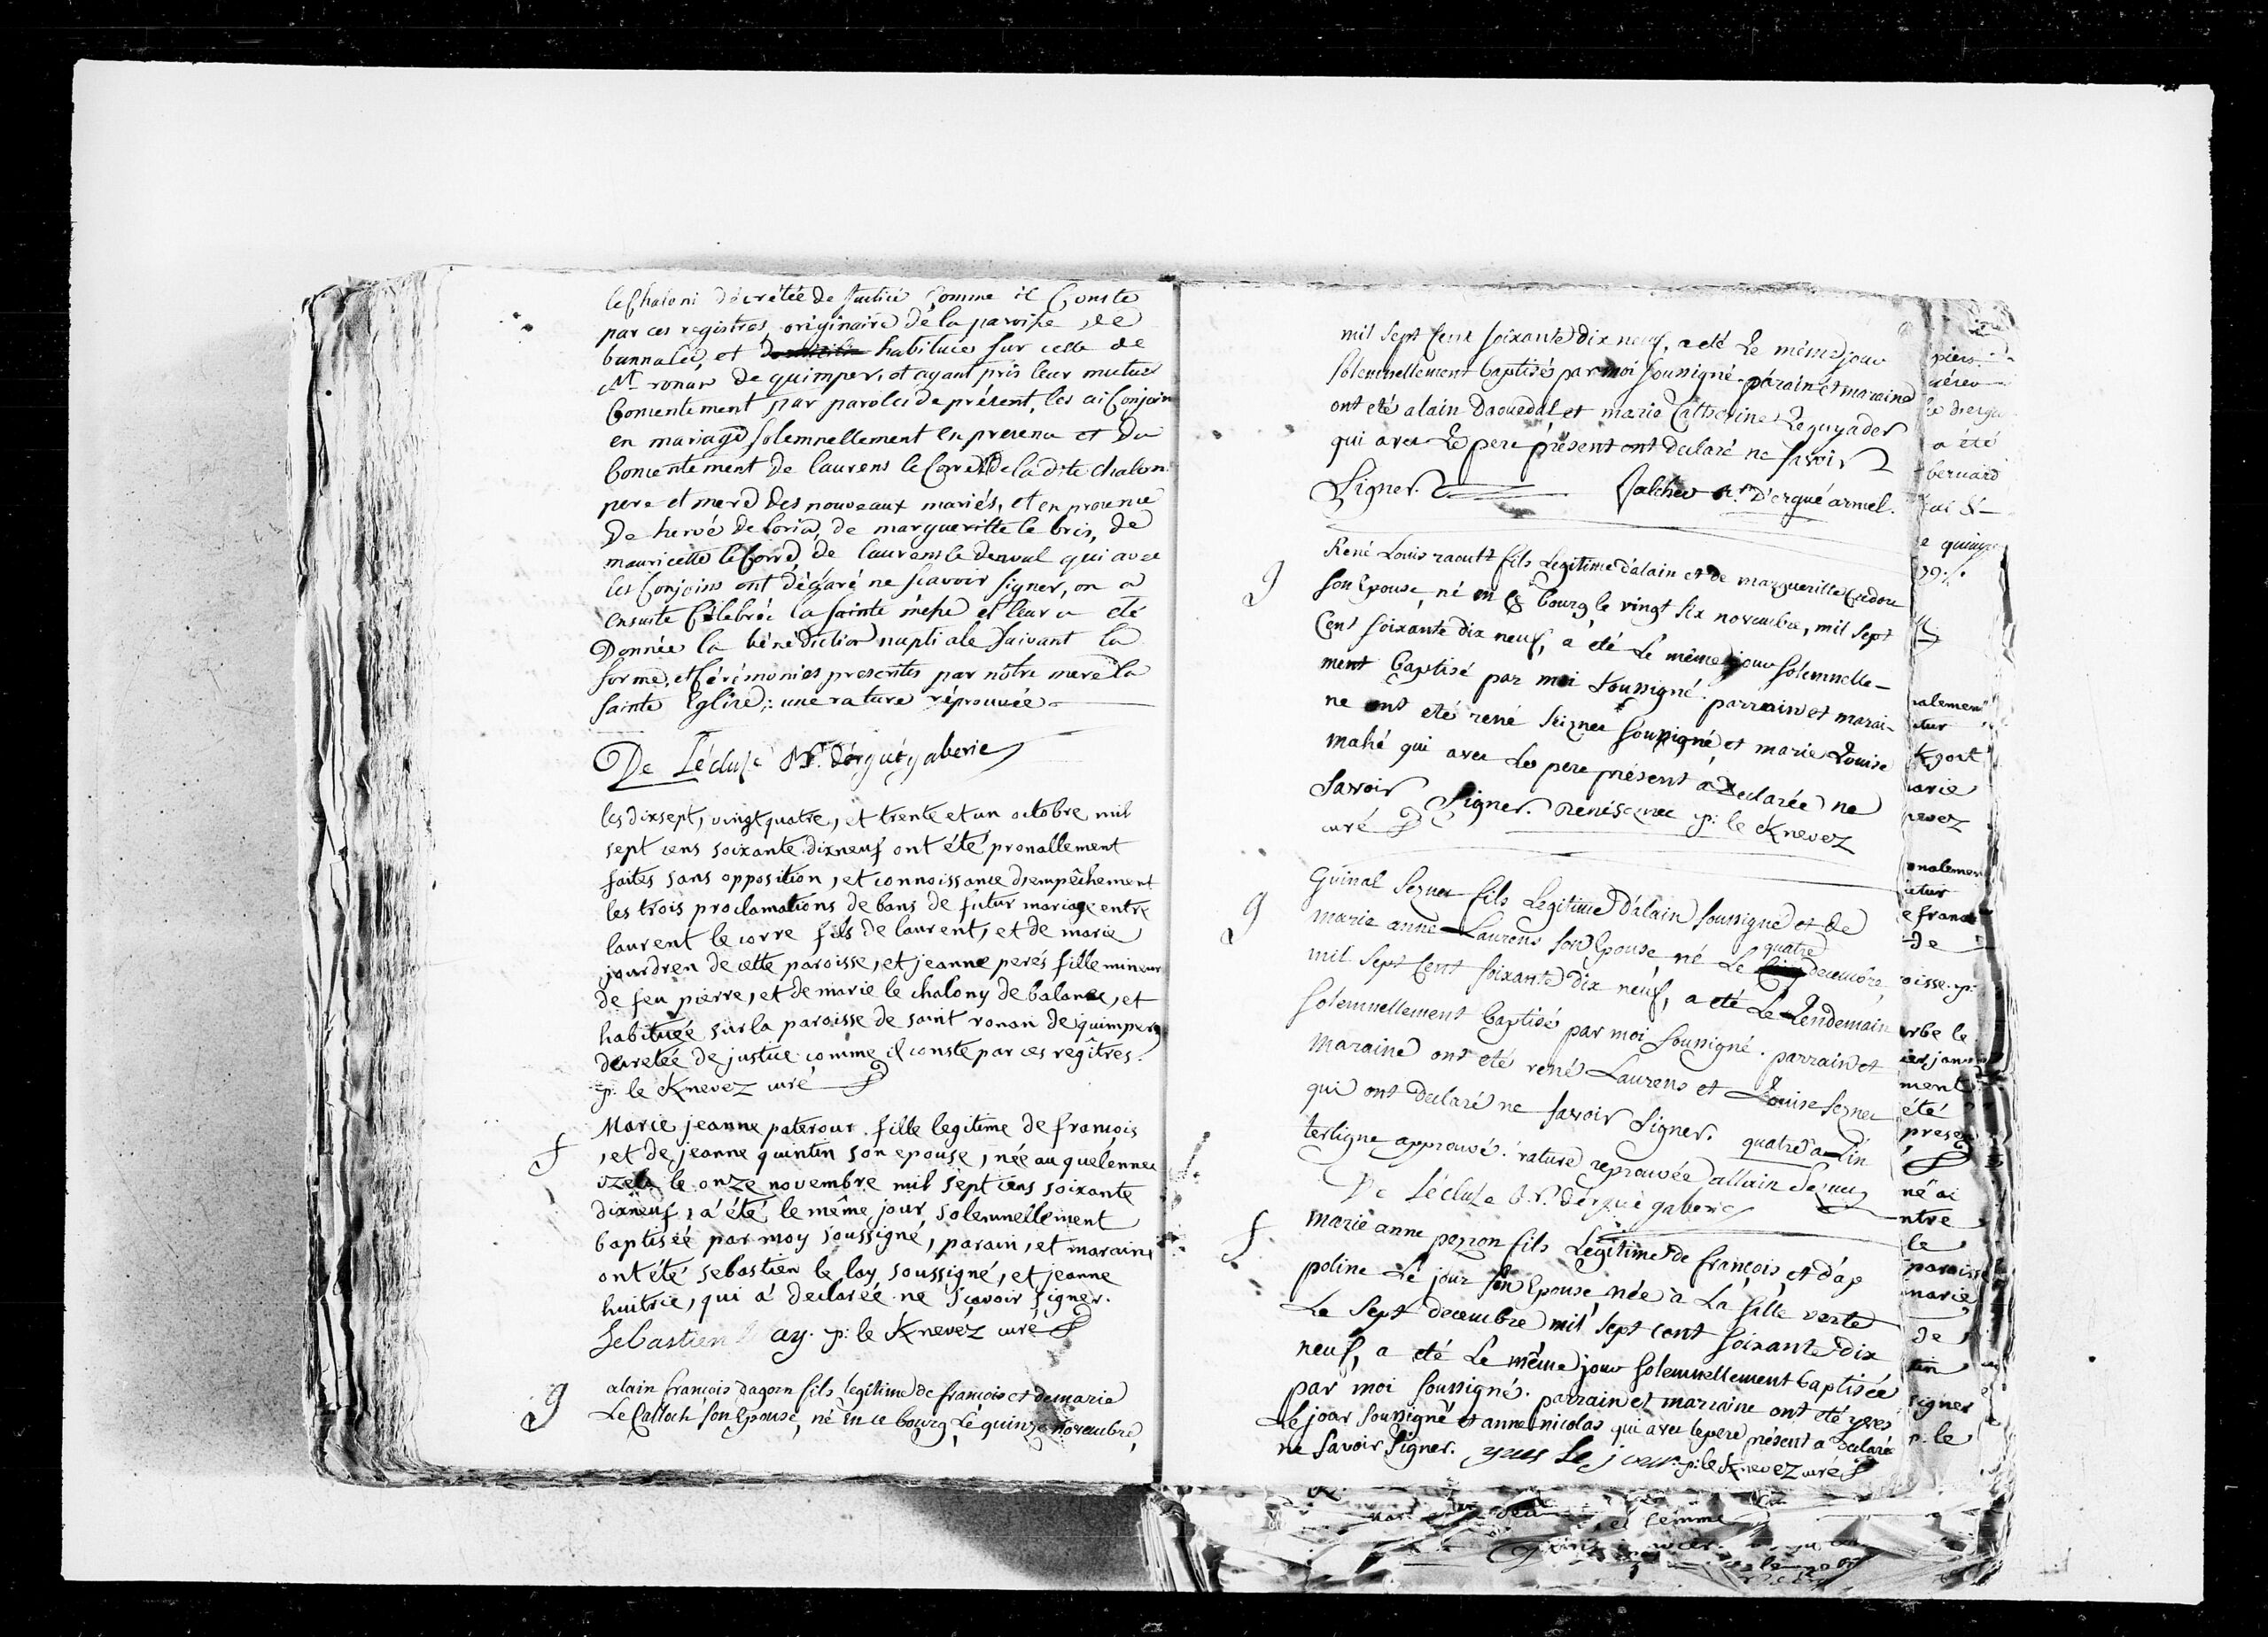 le Chaloni décrétée de Justice Comme il Conste
par ces registres originaire de la paroisse de
bannalec, et habituée sur celle de
St ronan de quimper, et ayant pris leur mutuel
Consentement par paroles de présent, les ai Conjoin
en mariage solemnellement en presence et Du
Consentement de laurens le Corre de la dite chaloni
pere et mere des nouveaux mariés, et en presence
De hervé de loria, de margueritte le bris, de
mauricette le Corre, de laurens le Denoul qui avec
les Conjoins ont déclaré ne scavoir signer, on a
ensuite Célébré la sainte messe et leur a été
Donnée la bénédiction nuptiale suivant la
forme, et Cérémonies prescrites par nôtre mere la
sainte Eglise; une rature réprouvée
De Lécluse Rr. d'ergué gaberic
les dixsept, vingt quatre, et trente et un octobre mil
sept cens soixante dixneuf ont été pronallement
faites sans opposition, et connoissance d'empêchement
les trois proclamations de bans de futur mariage entre
laurent le corre fils de laurent, et de marie
jourdren de cette paroisse, et jeanne perés fille mineure
de feu pierre, et de marie le chalony de balanec, et
habituée sur la paroisse de saint ronan de quimper
decretée de justice comme il conste par ces regîtres.
p: le Knevez curé
f Marie jeanne paterour fille legitime de francois
, et de jeanne quintin son epouse, née au quelennec
izela le onze novembre mil sept cens soixante
dixneuf, a été le même jour solemnellement
baptisée par moy soussigné, parain, et maraine
ont été sebastien le lay soussigné, et jeanne
huitric, qui a declarée ne scavoir signer.
Sebastien ay. p: le Knevez curé
g alain françois dagorn fils legitime de françois et de marie
Le Calloch son Epouse, né en ce bourg le quinze novembre,
mil sept Cent soixante dix neuf, a eté Le même jour
solemnellement baptisé par moi soussigné. parain et maraine
ont eté alain Daouedal et marie Catherine Leguyader
qui avec Le pere présent ont declaré ne savoir
Signer. Rr. D'ergué armel.
g René Louis raoult fils Legitime d'alain et de margueritte
son Epouse, né en Ce bourg le vingt six novembre, mil sept
Cent soixante dix neuf, a eté Le même jour solemnelle-
ment baptisé par moi soussigné. parrain et marai-
ne ont eté rené Seznec soussigné et marie Louise
mahé qui avec Le pere présent a declarée ne
savoir Signer. René seznec p: le Knevez
curé
g Guinal Seznec fils Legitime d'alain soussigné et de
marie anne Laurens son Epouse né Le quatre decembre
mil sept Cent soixante dix neuf, a eté Le Lendemain
solemnellement baptisé par moi soussigné. parrain et
maraine ont eté rené Laurens et Louise Seznec
qui ont declaré ne savoir Signer. quatre a Lin
terligne approuvé. rature reprouvée allain Seznec
De Lécluse Rr. d'ergué gaberic
f marie anne pezron fils Legitime de françois et d'ap
poline Le jour son Epouse, née à La salle verte
Le sept decembre mil sept cent soixante dix
neuf, a eté Le même jour solemnellement baptisée
par moi soussigné. parrain et marraine ont eté yves
Le jour soussigné et anne nicolas qui avec le pere présent a declaré
ne savoir signer. yves le jour. p: le Knevez curé